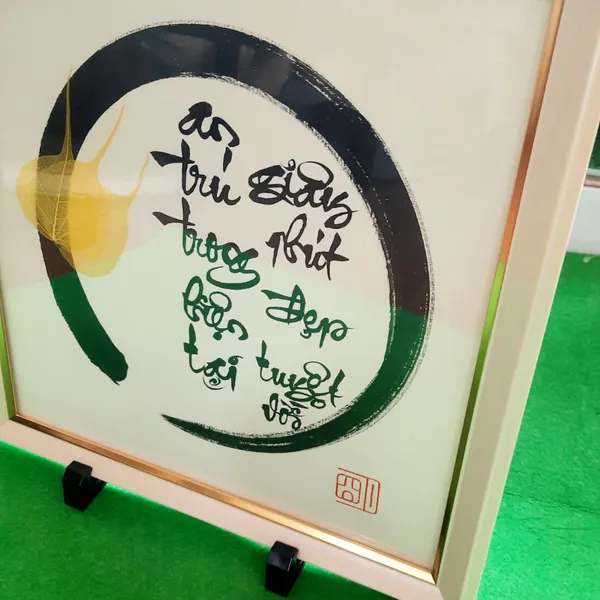 an
trú
trong
hiện
tại
giây
phút
đẹp
tuyệt
vời